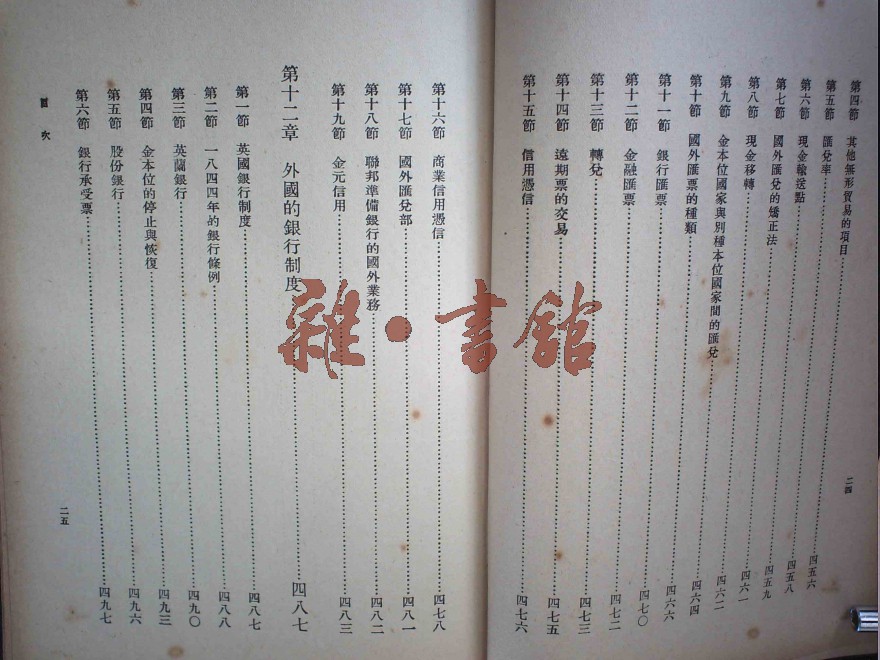 第四節　其他無形貿易的項目……四五六
第五節　匯兌率……四五六
第六節　現金輸送點……四五八
第七節　國外匯兌的矯正法……四五九
第八節　現金移轉……四六一
第九節　金本位國家與別種本位國家間的匯兌……四六二
第十節　國外匯票的種類……四六四
第十一節　銀行匯票……四六六
第十二節　金融匯票……四七〇
第十三節　轉兌……四七二
第十四節　遠期票的交易……四七三
第十五節　信用憑信……四七五
二四
第十六節　商業信用憑信……四七六
第十七節　國外匯兌部……四七八
第十八節　聯邦準備銀行的國外業務……四八一
第十九節　金元信用……四八二
第十二章　外國的銀行制度……四八七
第一節　英國銀行制度……四八七
第二節　一八四四年的銀行條例……四八八
第三節　英蘭銀行……四九〇
第四節　金本位的停止與恢復……四九三
第五節　股份銀行……四九六
第六節　銀行承受票……四九七
目次
二五
雜·書館